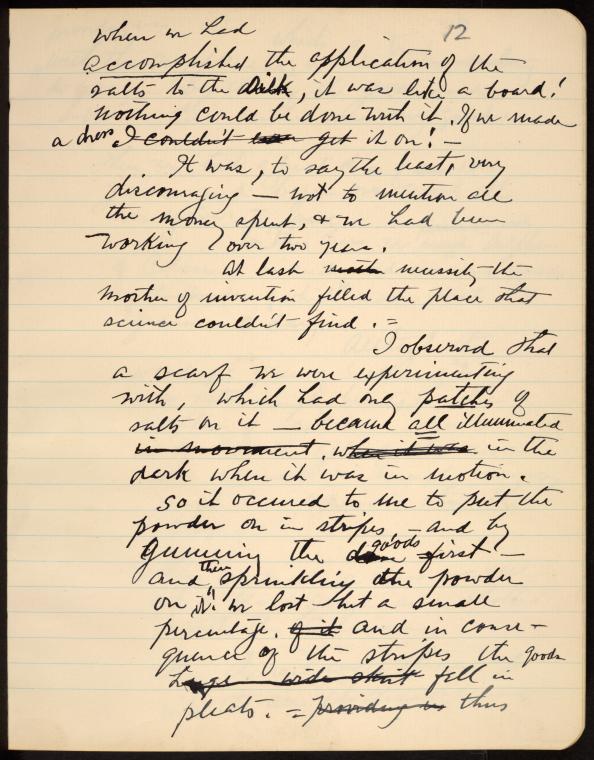 12
when we had
accomplished the application of the
salts to the silk, it was like a board!
nothing could be done with it. If we made
a dress I couldn't even get it on! —
It was, to say the least, very
discouraging — not to mention all
the money spent, & we had been
working over two years.
At last moth necessity the
mother of invention filled the place that
science couldn't find. =
I observed that
a scarf we were experimenting
with, which had only patches of
salts on it — became all illuminated
in movement. when it was in the
dark when it was in motion.
So it occured to me to put the
powder on in stripes — and by
gumming the goods first —
and then sprinkling the powder
on it." we lost but a small
percentage. of it and in conse-
quence of the stripes the goods
wide skirt fell in
pleats. = providing us thus